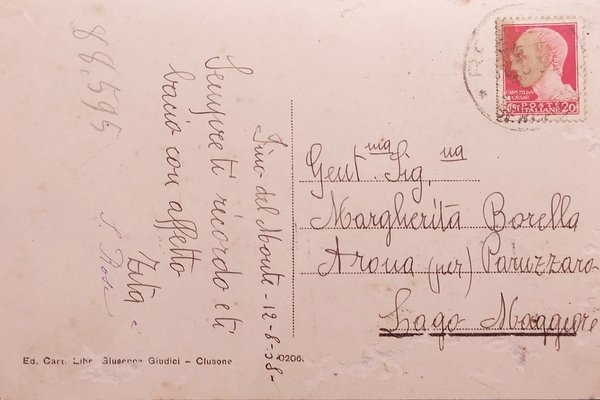 88.595
Fino del Monte - 12-8-38-
Sempre ti ricordo e ti
bacio con affetto
Zita e
Gent.ma Sig.na
Margherita Borella
Arona (per) Paruzzaro
Lago Maggiore
POSTE
ITALIANE
20
Ed. Cart. Libr. Giuseppe Giudici - Clusone
0206